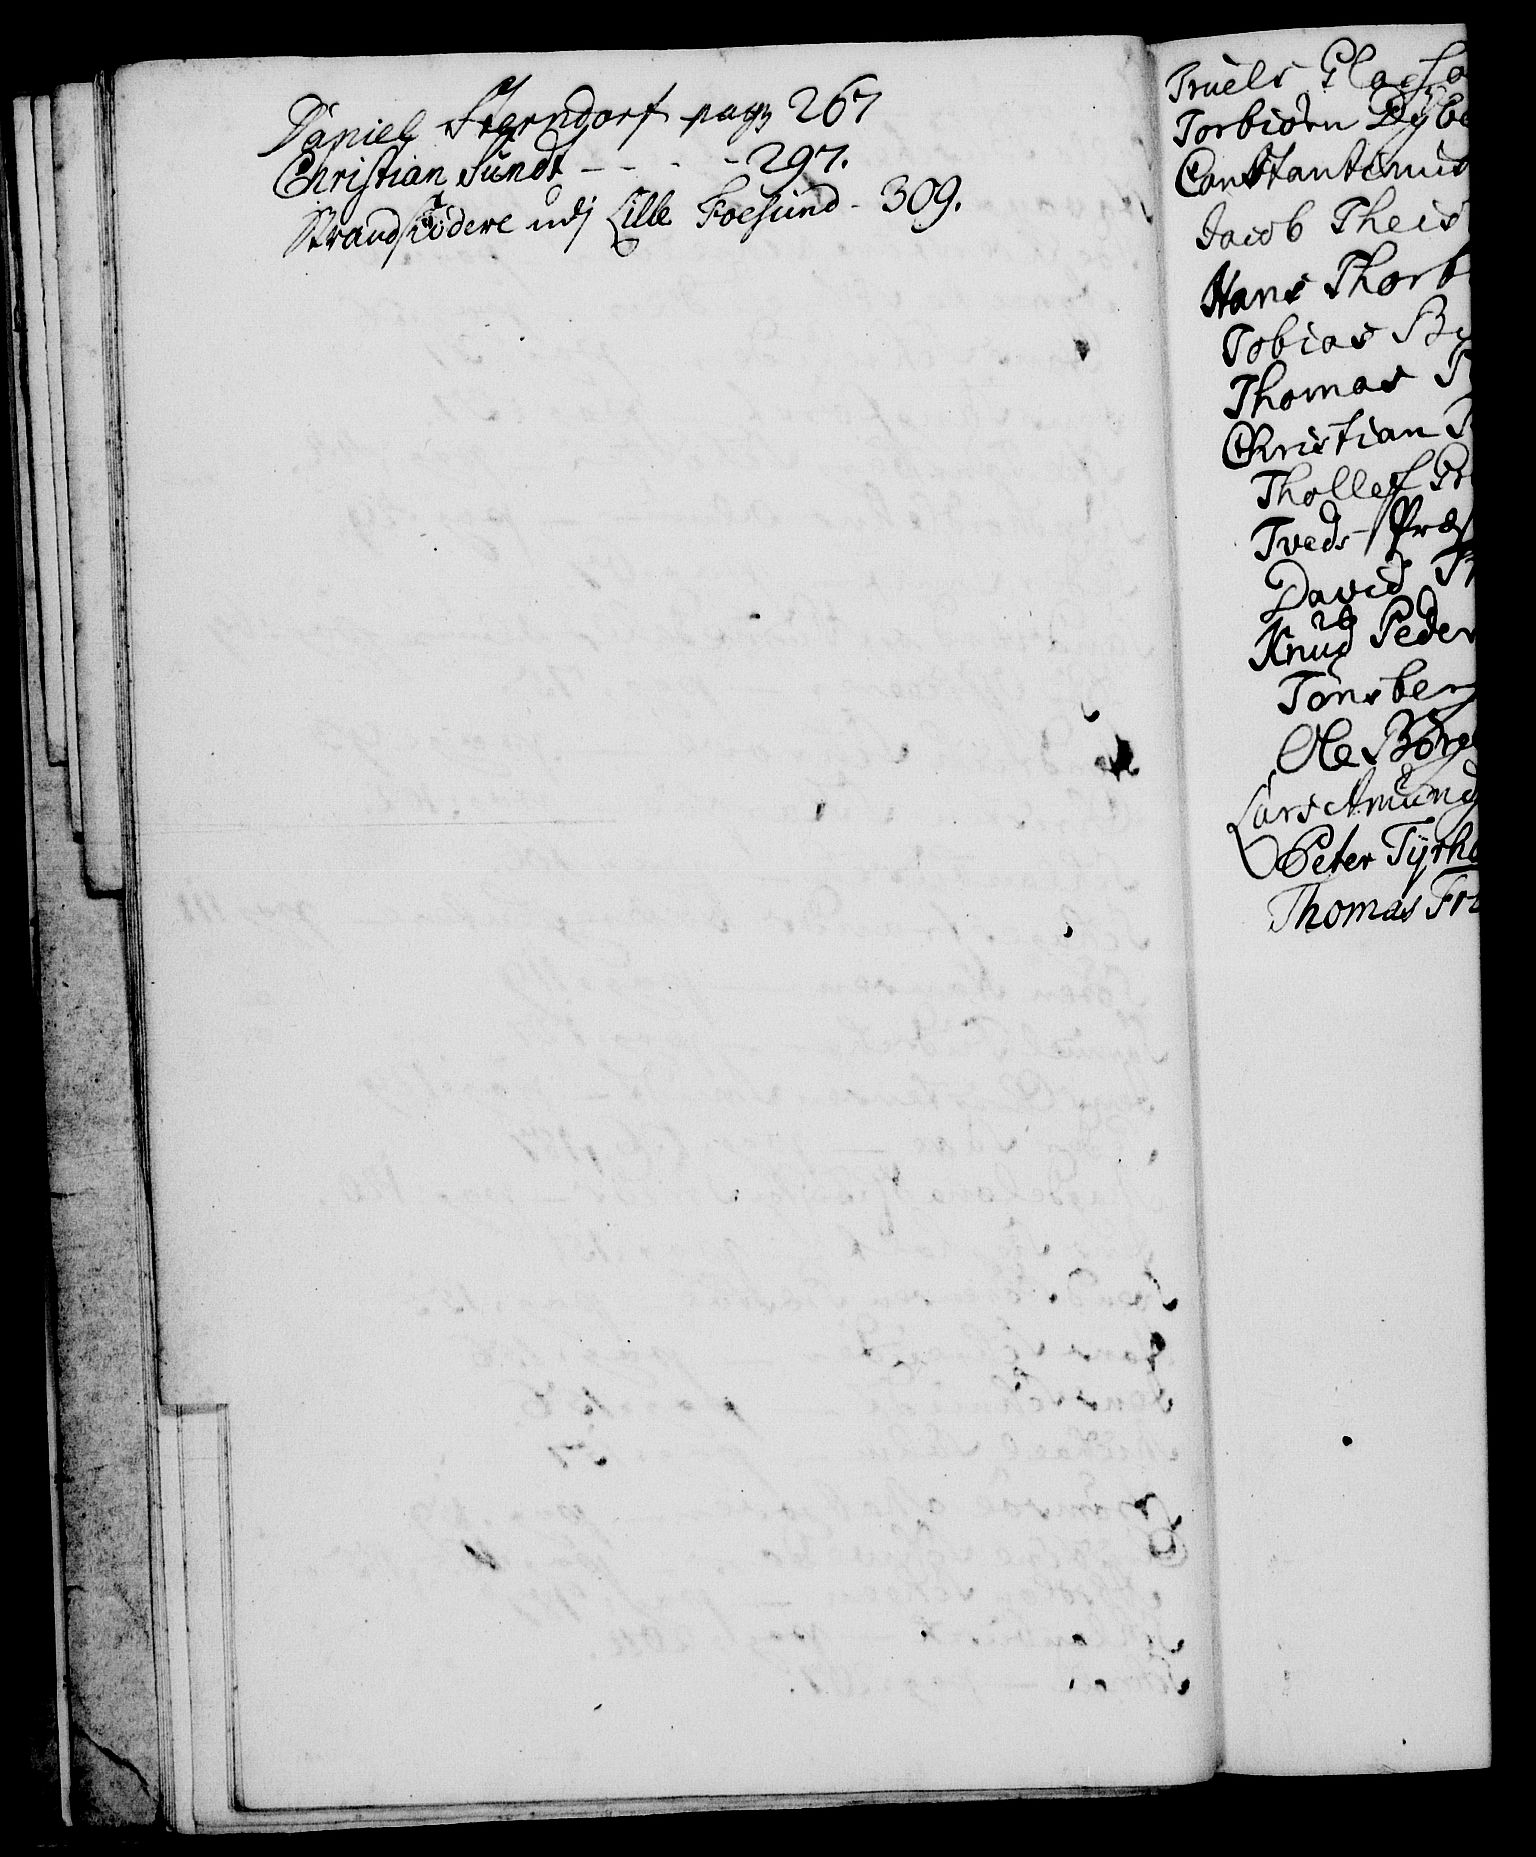 Daniel Sterndorf pag 267
Christian Sundt - - - - 297.
Strandsidere udj Lille Foesund - 309.
Truels
Torbiörn
Constantinus
Jacob Theis
Hans Thorb
Tobias
Thomas
Christian
Thollef
Tveds Præs
David
Knud Peder
Tönsberg
Ole Börge
Lars Amund
Peter Tyrho
Thomas Fr